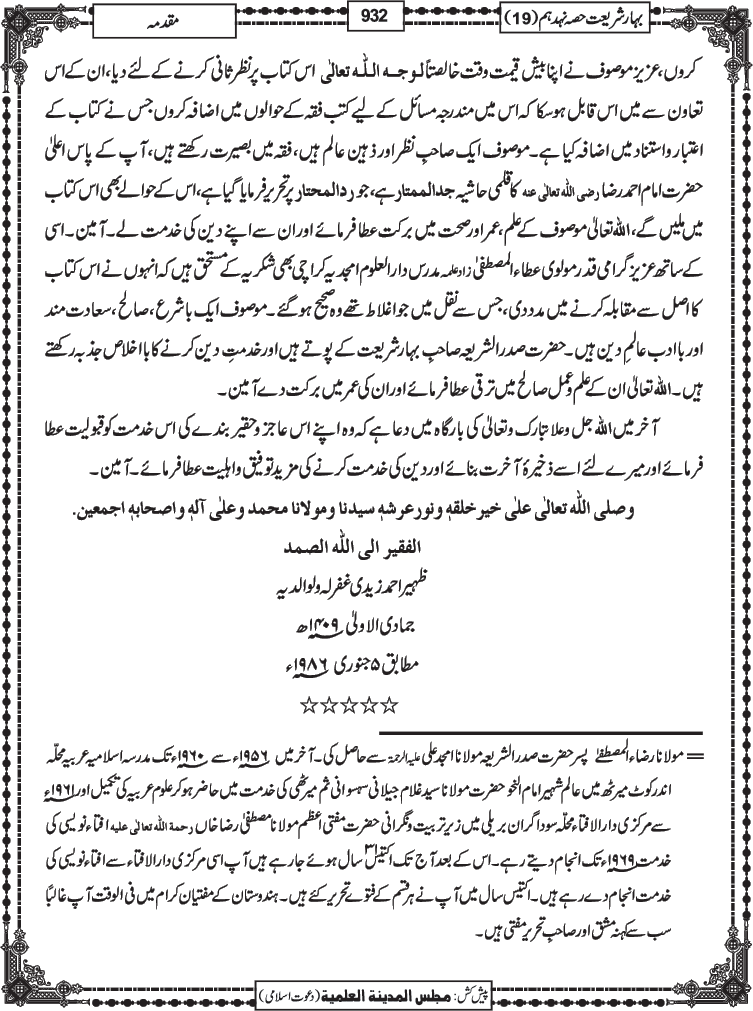 بہار شریعت حصہ نہدہم (19)
932
مقدمہ
کروں، عزیز موصوف نے اپنا بیش قیمت وقت خالصتاً لوجہ اللہ تعالٰی اس کتاب پر نظر ثانی کرنے کے لئے دیا، ان کے اس
تعاون سے میں اس قابل ہوسکا کہ اس میں مندرجہ مسائل کے لیے کتب فقہ کے حوالوں میں اضافہ کروں جس نے کتاب کے
اعتبار و استناد میں اضافہ کیا ہے۔ موصوف ایک صاحبِ نظر اور ذہین عالم ہیں، فقہ میں بصیرت رکھتے ہیں، آپ کے پاس اعلیٰ
حضرت امام احمد رضا رضی اللہ تعالٰی عنہ کا قلمی حاشیہ جد الممتار ہے، جو رد المحتار پر تحریر فرمایا گیا ہے، اس کے حوالے بھی اس کتاب
میں ملیں گے، اللہ تعالیٰ موصوف کے علم، عمر اور صحت میں برکت عطا فرمائے اور ان سے اپنے دین کی خدمت لے۔ آمین۔ اسی
کے ساتھ عزیز گرامی قدر مولوی عطاء المصطفیٰ زاد علمہ مدرس دارالعلوم امجدیہ کراچی بھی شکریہ کے مستحق ہیں کہ انہوں نے اس کتاب
کا اصل سے مقابلہ کرنے میں مدد دی، جس سے نقل میں جو اغلاط تھے وہ صحیح ہو گئے۔ موصوف ایک با شرع، صالح، سعادت مند
اور با ادب عالمِ دین ہیں۔ حضرت صدر الشریعہ صاحبِ بہار شریعت کے پوتے ہیں اور خدمتِ دین کرنے کا با اخلاص جذبہ رکھتے
ہیں۔ اللہ تعالیٰ ان کے علم و عمل صالح میں ترقی عطا فرمائے اور ان کی عمر میں برکت دے آمین۔
آخر میں اللہ جل وعلا تبارک وتعالیٰ کی بارگاہ میں دعا ہے کہ وہ اپنے اس عاجز و حقیر بندے کی اس خدمت کو قبولیت عطا
فرمائے اور میرے لئے اسے ذخیرۂ آخرت بنائے اور دین کی خدمت کرنے کی مزید توفیق و اہلیت عطا فرمائے۔ آمین۔
وصلی اللہ تعالٰی علٰی خیر خلقہٖ و نور عرشہٖ سیدنا و مولانا محمد و علٰی آلہٖ و اصحابہٖ اجمعین.
الفقیر الی اللہ الصمد
ظہیر احمد زیدی غفر لہ ولوالدیہ
جمادی الاولیٰ ۱۴۰۹ھ
مطابق ۵ جنوری ۱۹۸۶ء
☆☆☆☆☆
= مولانا رضاء المصطفےٰ پسر حضرت صدر الشریعہ مولانا امجد علی علیہ الرحمۃ سے حاصل کی۔ آخر میں ۱۹۵۶ء سے ۱۹۶۰ء تک مدرسہ اسلامیہ عربیہ محلّہ
اندر کوٹ میرٹھ میں عالم شہیر امام النحو حضرت مولانا سید غلام جیلانی سہسوانی ثم میرٹھی کی خدمت میں حاضر ہو کر علوم عربیہ کی تکمیل اور ۱۹۶۱ء
سے مرکزی دارالافتاء محلّہ سوداگران بریلی میں زیر تربیت و نگرانی حضرت مفتی اعظم مولانا مصطفیٰ رضا خاں رحمۃ اللہ تعالٰی علیہ افتاء نویسی کی
خدمت ۱۹۶۹ء تک انجام دیتے رہے۔ اس کے بعد آج تک اکتیس۳۱ سال ہوئے جا رہے ہیں آپ اسی مرکزی دارالافتاء سے افتاء نویسی کی
خدمت انجام دے رہے ہیں۔ اکتیس سال میں آپ نے ہر قسم کے فتوے تحریر کئے ہیں۔ ہندوستان کے مفتیان کرام میں فی الوقت آپ غالباً
سب سے کہنہ مشق اور صاحبِ تحریر مفتی ہیں۔
پیش کش: مجلس المدینۃ العلمیۃ (دعوت اسلامی)